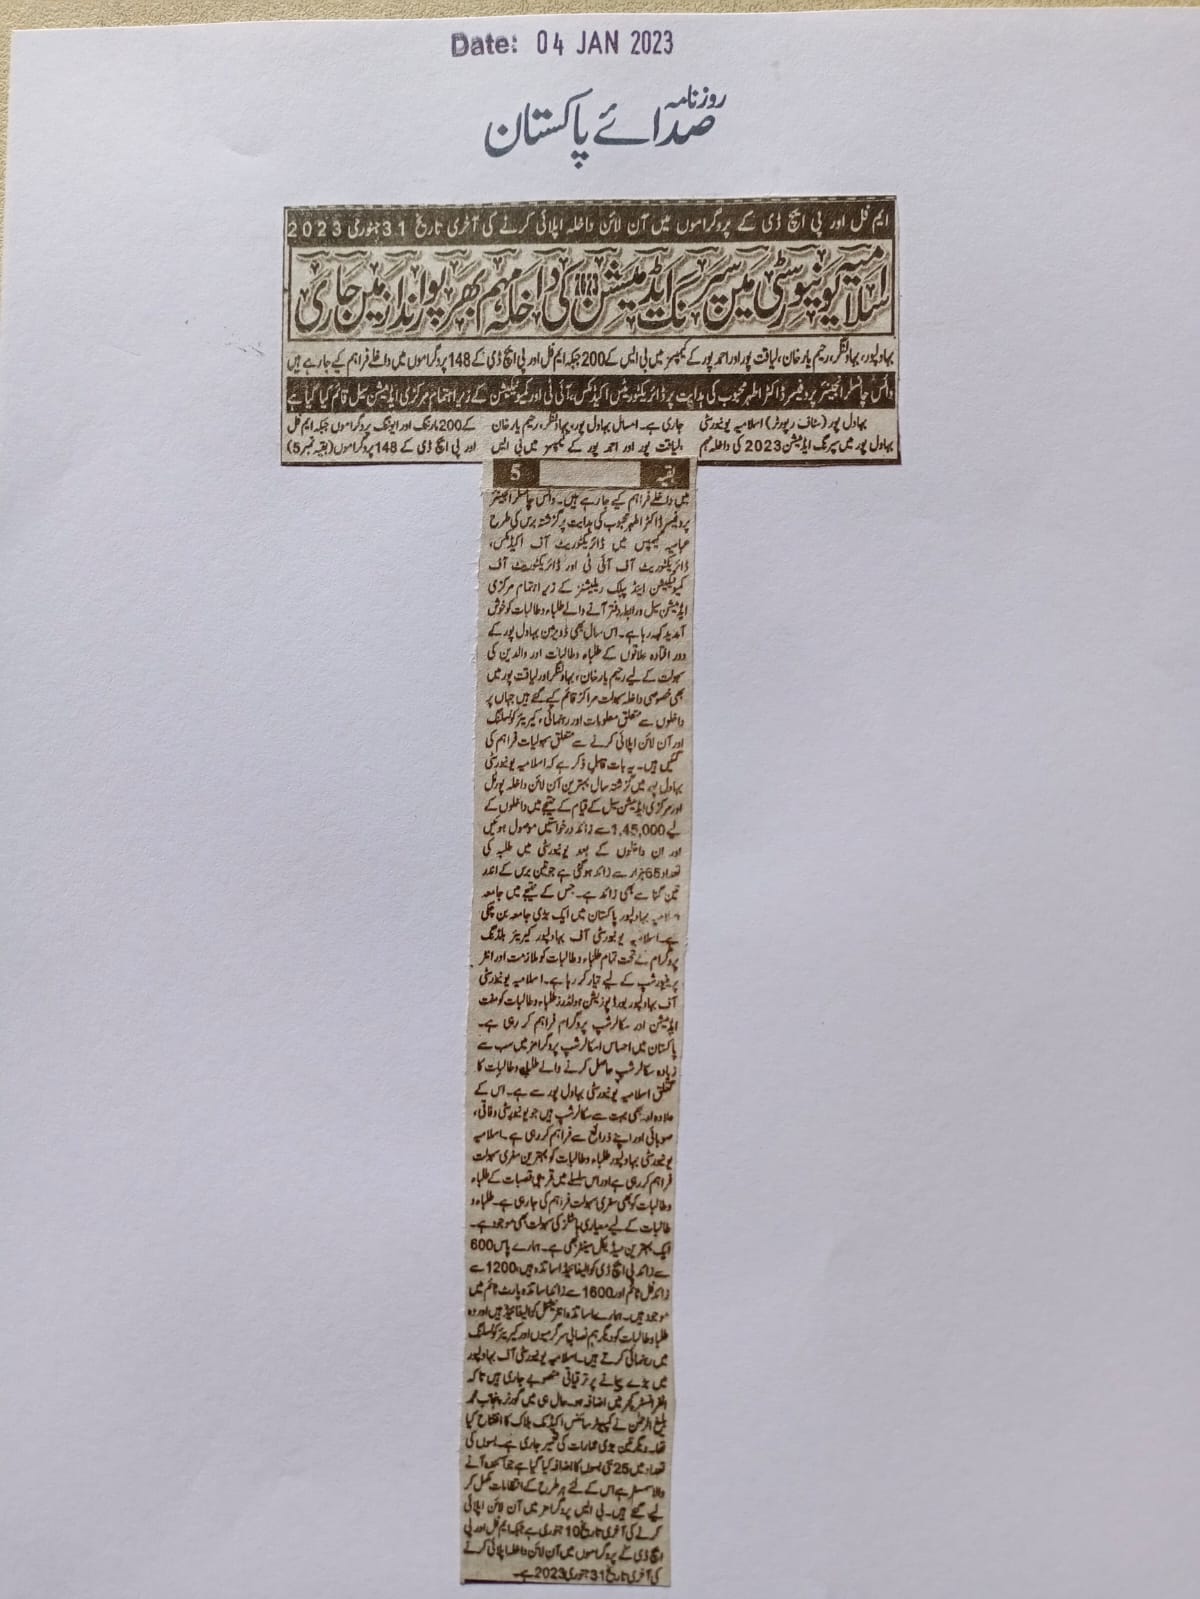 Date: 04 JAN 2023
روزنامہ
صدائے پاکستان
ایم فل اور پی ایچ ڈی کے پروگراموں میں آن لائن داخلہ اپلائی کرنے کی آخری تاریخ 31 جنوری 2023
اسلامیہ یونیورسٹی میں سپرنگ ایڈمیشن 2023 کی داخلہ مہم بھرپور انداز میں جاری
بہاولپور، بہاولنگر، رحیم یار خان، لیاقت پور اور احمد پور کے کیمپسز میں بی ایس کے 200 جبکہ ایم فل اور پی ایچ ڈی کے 148 پروگراموں میں داخلے فراہم کیے جا رہے ہیں
وائس چانسلر انجینئر پروفیسر ڈاکٹر اطہر محبوب کی ہدایت پر ڈائریکٹوریٹس اکیڈمکس، آئی ٹی اور کمیونیکیشن کے زیر اہتمام مرکزی ایڈمیشن سیل قائم کیا گیا ہے
بہاول پور (سٹاف رپورٹر) اسلامیہ یونیورسٹی
بہاول پور میں سپرنگ ایڈمیشن 2023 کی داخلہ مہم
جاری ہے۔ امسال بہاول پور، بہاولنگر، رحیم یار خان
،لیاقت پور اور احمد پور کے کیمپسز میں بی ایس
کے 200 مارننگ اور ایوننگ پروگراموں جبکہ ایم فل
اور پی ایچ ڈی کے 148 پروگراموں (بقیہ نمبر 5)
بقیہ 5
میں داخلے فراہم کیے جا رہے ہیں۔ وائس چانسلر انجینئر
پروفیسر ڈاکٹر اطہر محبوب کی ہدایت پر گزشتہ برس کی طرح
عباسیہ کیمپس میں ڈائریکٹوریٹ آف اکیڈمکس،
ڈائریکٹوریٹ آف آئی ٹی اور ڈائریکٹوریٹ آف
کمیونیکیشن اینڈ پبلک ریلیشنز کے زیر اہتمام مرکزی
ایڈمیشن سیل و رابطہ دفتر آنے والے طلباء و طالبات کو خوش
آمدید کہہ رہا ہے۔ اس سال بھی ڈویژن بہاول پور کے
دور افتادہ علاقوں کے طلباء و طالبات اور والدین کی
سہولت کے لیے رحیم یار خان، بہاولنگر اور لیاقت پور میں
بھی خصوصی داخلہ سہولت مراکز قائم کیے گئے ہیں جہاں پر
داخلوں سے متعلق معلومات اور رہنمائی، کیریئر کونسلنگ
اور آن لائن اپلائی کرنے سے متعلق سہولیات فراہم کی
گئیں ہیں۔ یہ بات قابل ذکر ہے کہ اسلامیہ یونیورسٹی
بہاول پور میں گزشتہ سال بہترین آن لائن داخلہ پورٹل
اور مرکزی ایڈمیشن سیل کے قیام کے نتیجے میں داخلوں کے
لیے 1,45,000 سے زائد درخواستیں موصول ہوئیں
اور ان داخلوں کے بعد یونیورسٹی میں طلبہ کی
تعداد 65 ہزار سے زائد ہو گئی ہے جو تین برس کے اندر
تین گنا سے بھی زائد ہے۔ جس کے نتیجے میں جامعہ
اسلامیہ بہاولپور پاکستان میں ایک بڑی جامعہ بن چکی
ہے۔ اسلامیہ یونیورسٹی آف بہاولپور کیریئر بلڈنگ
پروگرام کے تحت تمام طلباء و طالبات کو ملازمت اور انٹر
پرینیورشپ کے لیے تیار کر رہا ہے۔ اسلامیہ یونیورسٹی
آف بہاولپور بورڈ پوزیشن ہولڈرز طلباء و طالبات کو مفت
ایڈمیشن اور سکالرشپ پروگرام فراہم کر رہی ہے۔
پاکستان میں احساس اسکالرشپ پروگرامز میں سب سے
زیادہ سکالرشپ حاصل کرنے والے طلباء و طالبات کا
تعلق اسلامیہ یونیورسٹی بہاول پور سے ہے۔ اس کے
علاوہ اور بھی بہت سے سکالرشپ ہیں جو یونیورسٹی وفاقی،
صوبائی اور اپنے ذرائع سے فراہم کر رہی ہے۔ اسلامیہ
یونیورسٹی بہاولپور طلباء و طالبات کو بہترین سفری سہولت
فراہم کر رہی ہے اور اس سلسلے میں قریبی قصبات کے طلباء
و طالبات کو بھی سفری سہولت فراہم کی جا رہی ہے۔ طلباء و
طالبات کے لیے معیاری ہاسٹلز کی سہولت بھی موجود ہے۔
ایک بہترین میڈیکل سینٹر بھی ہے۔ ہمارے پاس 600
سے زائد پی ایچ ڈی کوالیفائیڈ اساتذہ ہیں، 1200 سے
زائد فل ٹائم اور 1600 سے زائد اساتذہ پارٹ ٹائم میں
موجود ہیں۔ ہمارے اساتذہ انٹرنیشنل کوالیفائیڈ ہیں اور وہ
طلبا و طالبات کو دیگر ہم نصابی سرگرمیوں اور کیریئر کونسلنگ
میں رہنمائی کرتے ہیں۔ اسلامیہ یونیورسٹی آف بہاولپور
میں بڑے پیمانے پر ترقیاتی منصوبے جاری ہیں تاکہ
انفراسٹرکچر میں اضافہ ہو۔ حال ہی میں گورنر پنجاب محمد
بلیغ الرحمٰن نے کمپیوٹر سائنس اکیڈمک بلاک کا افتتاح کیا
تھا۔ دیگر تین بڑی عمارات کی تعمیر جاری ہے۔ بسوں کی
تعداد میں 25 نئی بسوں کا اضافہ کیا گیا ہے جو کہ آنے
والا سمسٹر ہے اس کے لئے ہر طرح کے انتظامات مکمل کر
لیے گئے ہیں۔ بی ایس پروگرامز میں آن لائن اپلائی
کرنے کی آخری تاریخ 10 جنوری ہے جبکہ ایم فل اور پی
ایچ ڈی کے پروگراموں میں آن لائن داخلہ اپلائی کرنے
کی آخری تاریخ 31 جنوری 2023 ہے۔